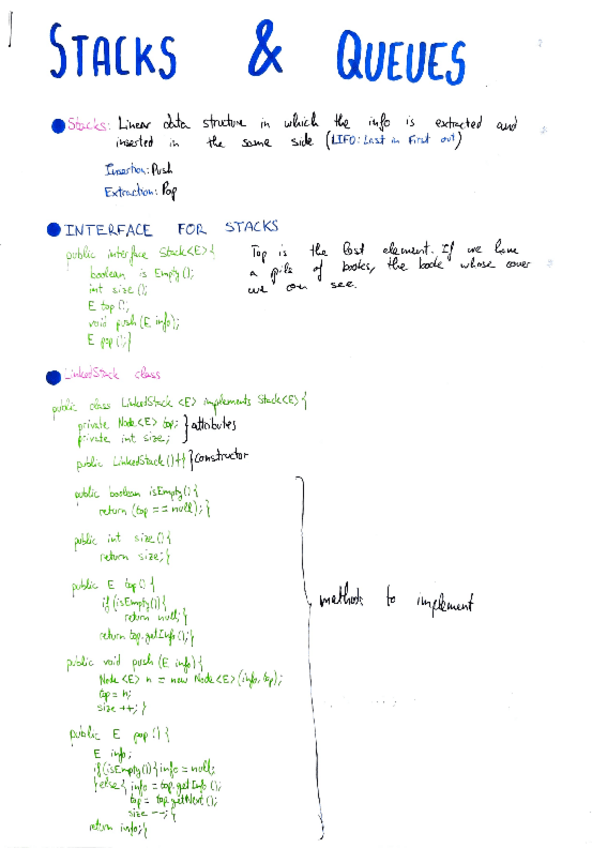 STACKS & QUEUES
Stacks: Linear data structure in which the info is extracted and
inserted in the same side (LIFO: Last in First out)
Insertion: Push
Extraction: Pop
INTERFACE FOR STACKS
public interface Stack<E>{
boolean is Empty();
int size();
E top();
void push(E info);
E pop();}
Top is the last element. If we have
a pile of books, the book whose cover
we can see.
LinkedStack class
public class LinkedStack <E> implements Stack<E>{
private Node<E> top; } attributes
private int size;
public LinkedStack(){} } constructor
public boolean isEmpty(){
return (top == null);}
public int size(){
return size;}
public E top(){
if (isEmpty()){
return null;}
return top.getInfo();}
public void push(E info){
Node <E> n = new Node <E> (info, top);
top = n;
size ++;}
public E pop(){
E info;
if (isEmpty()){ info = null;
}else{ info = top.getInfo();
top = top.getNext();
size --;}
return info;}
methods to implement